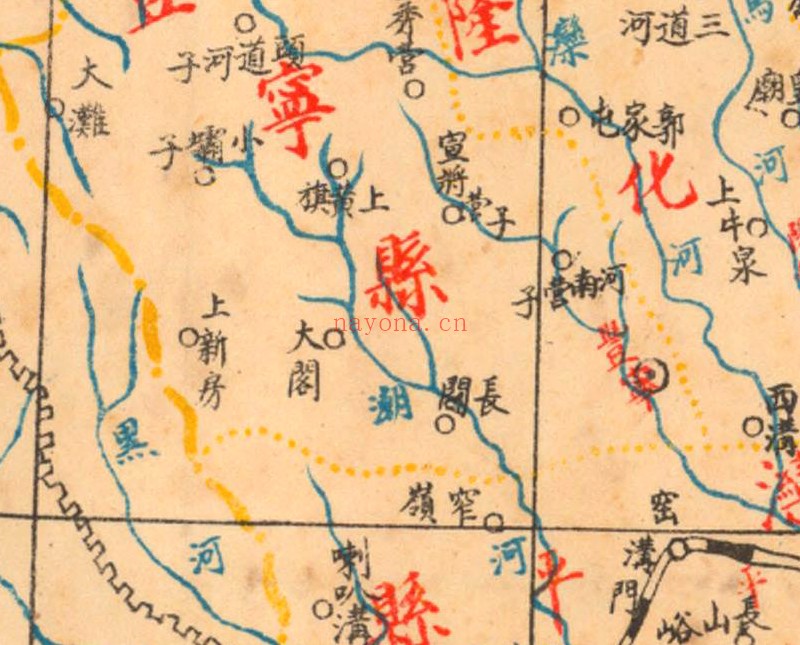 隆
秀營
灤
三道河
馬
廟
大灘
頭道河子
寧
郭家屯
小壩子
宣將營子
化
河
上黃旗
上牛泉
縣
河
河南營子
上新房
大閣
nayona.cn
豐寧
潮
長閣
西溝
黑
灤
窄嶺
窑溝門
河
河
喇叭溝
縣
平
平
長
山峪